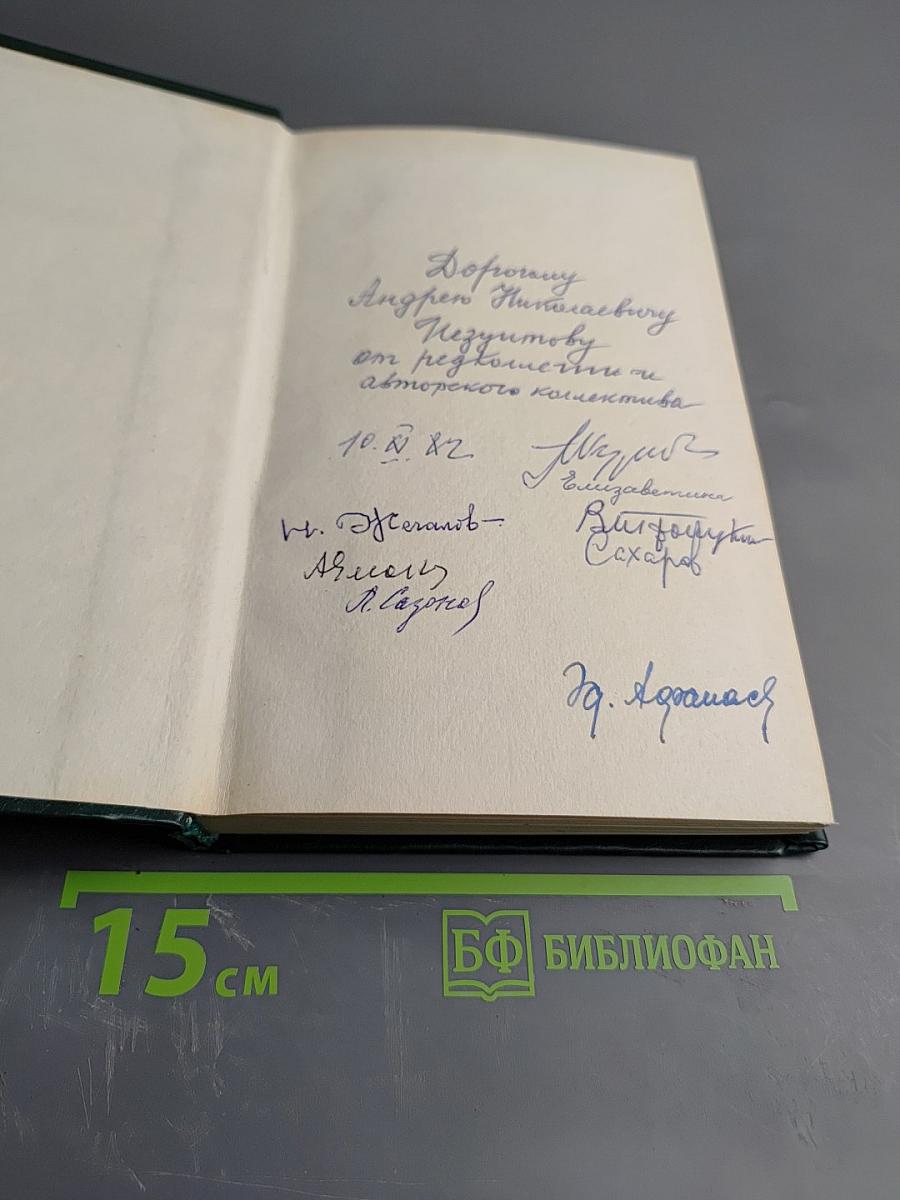 Дорогому
Андрею Николаевичу
Иезуитову
от редколлегии и
авторского коллектива
10.XI.82
Елизаветина
Н. Жегалов
Сахаров
Л. Сазонов
Эд. Афанась
15 см
БФ БИБЛИОФАН